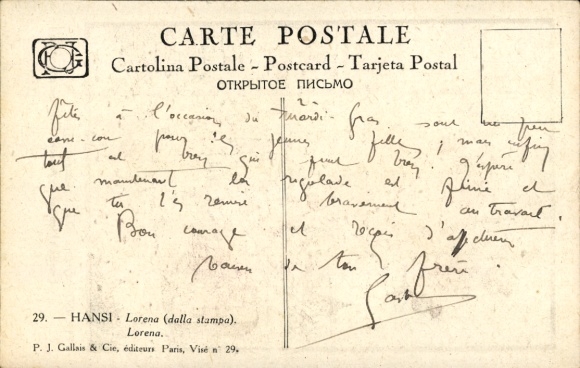 CARTE POSTALE
Cartolina Postale - Postcard - Tarjeta Postal
ОТКРЫТОЕ ПИСЬМО
fêtes à l'occasion du Mardi-Gras sont un peu
pour les jeunes filles, mais enfin
tout est bien qui finit bien. J'espère
que maintenant la rigolade est finie et
que tu t'es remise bravement au travail.
Bon courage et reçois d'affectueux
baisers de ton frère
29. — HANSI - Lorena (dalla stampa).
Lorena.
P. J. Gallais & Cie, éditeurs Paris, Visé n° 29.